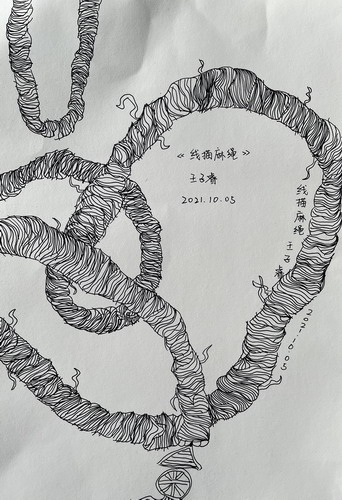 《线描麻绳》
王子睿
2021.10.05
线描麻绳 王子睿
2021.10.05